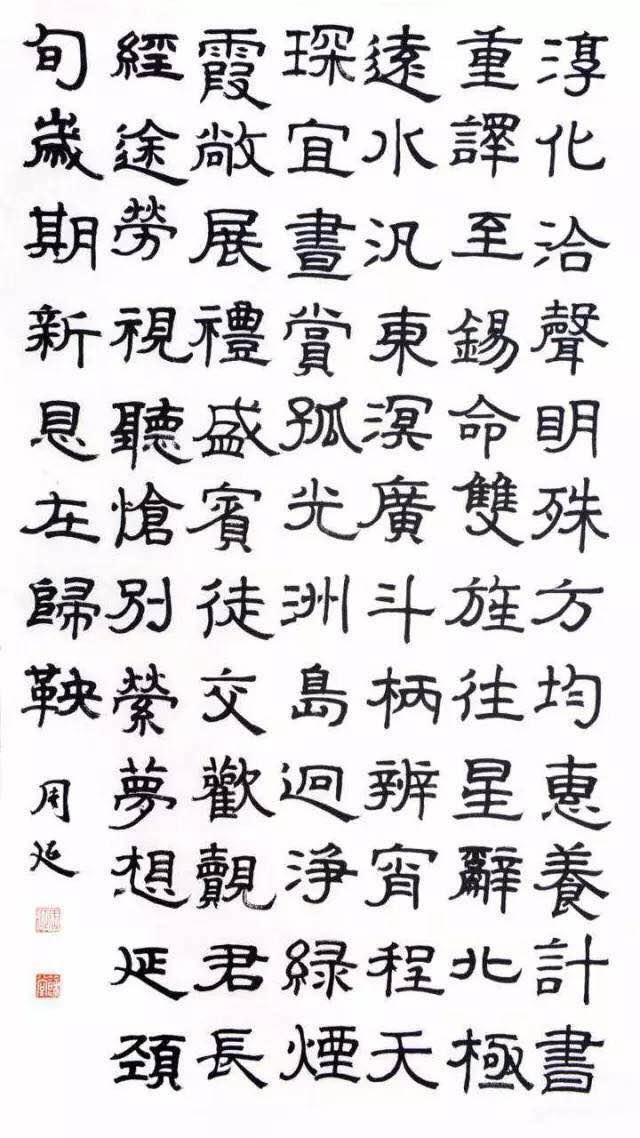 淳化洽聲明殊方均惠養計書
重譯至錫命雙旌往星辭北極
遠水汎東溟廣斗柄辨宵程天
琛宜晝賞孤光洲島迥淨綠煙
霞敞展禮盛賓徒交歡覿君長
經途勞視聽愴別縈夢想延頸
旬歲期新恩在歸鞅
周延